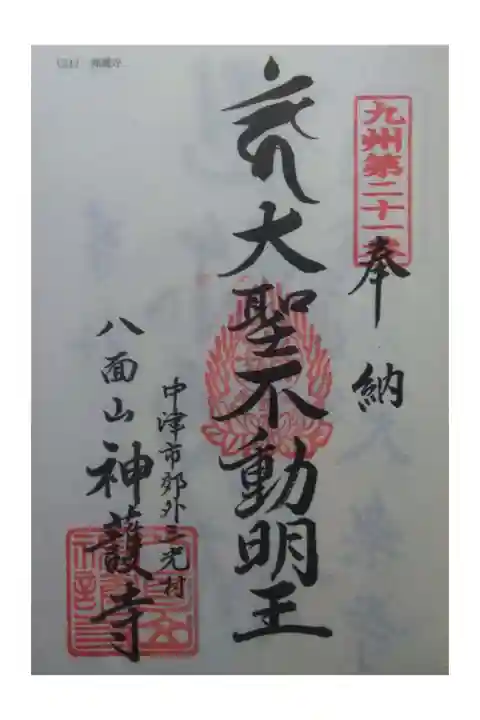 九州第二十一番
奉納
大聖不動明王
中津市郊外三光村
八面山神護寺